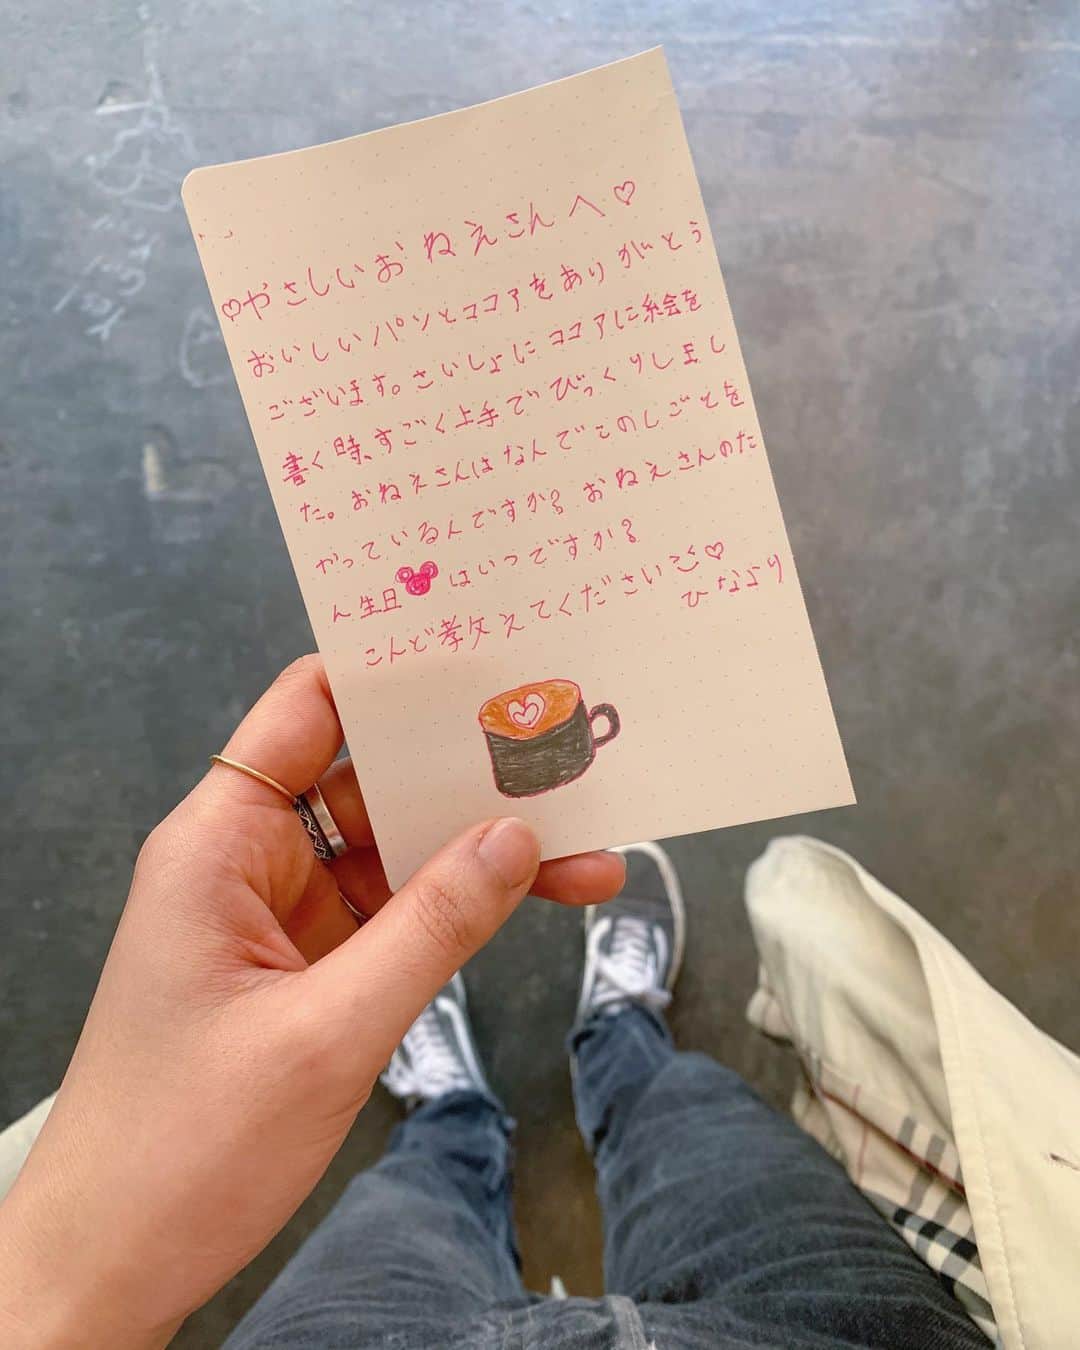 ♡やさしいおねえさんへ♡
おいしいパンとココアをありがとう
ございます。さいしょにココアに絵を
書く時、すごく上手でびっくりしまし
た。おねえさんはなんでこのしごとを
やっているんですか？おねえさんのた
ん生日はいつですか？
こんど教えてください♡
ひなより